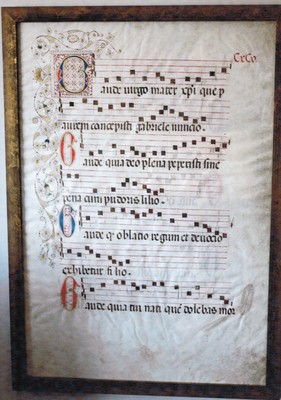 CxCo.
Gaude uirgo mater xpi que p
aurem concepisti gabriele nuncio.
Gaude quia deo plena peperisti sine
pena cum pudoris lilio.
Gaude qr oblatio regum et deuocio
exhibetur filio.
Gaude quia tui nati que dolebas mor